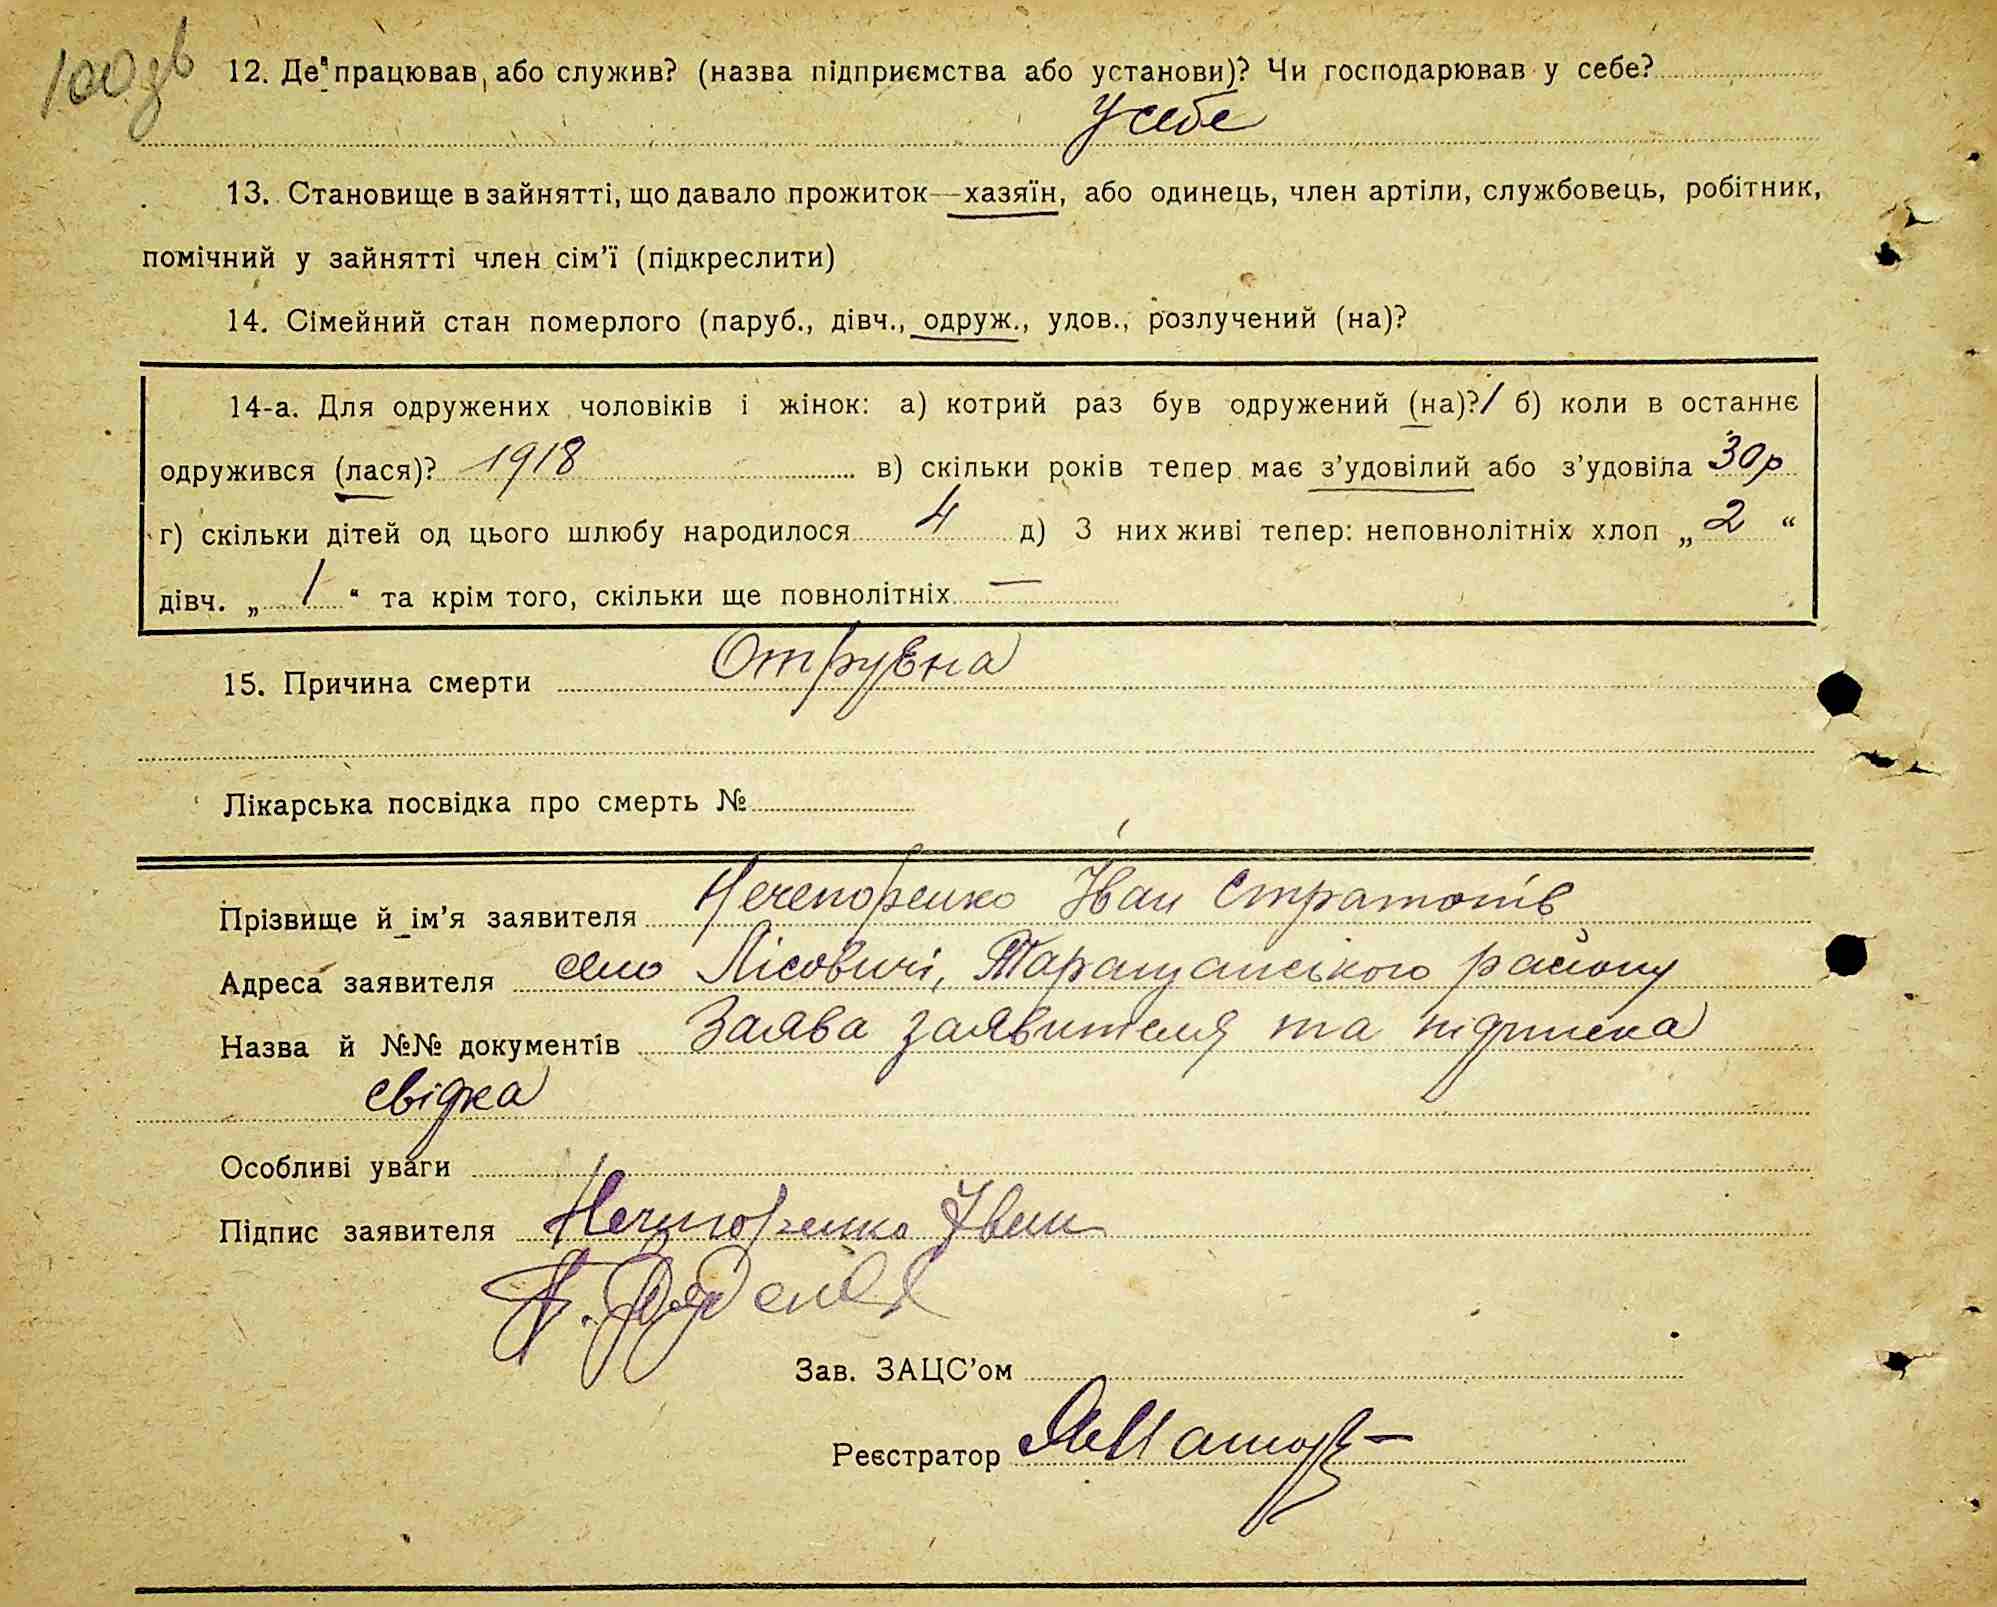 100 зв
12. Де працював, або служив? (назва підприємства або установи)? Чи господарював у себе?
У себе
13. Становище в зайнятті, що давало прожиток—хазяїн, або одинець, член артіли, службовець, робітник,
помічний у зайнятті член сім’ї (підкреслити)
14. Сімейний стан померлого (паруб., дівч., одруж., удов., розлучений (на)?
14-а. Для одружених чоловіків і жінок: а) котрий раз був одружений (на)? 1 б) коли в останнє
одружився (лася)? 1918 в) скільки років тепер має з’удовілий або з’удовіла 30 р
г) скільки дітей од цього шлюбу народилося 4 д) З них живі тепер: неповнолітніх хлоп „ 2 “
дівч. „ 1 “ та крім того, скільки ще повнолітніх —
15. Причина смерти Отруєна
Лікарська посвідка про смерть №
Прізвище й ім’я заявителя Нечепоренко Іван Стратонів
Адреса заявителя село Лісовичі, Таращанського району
Назва й №№ документів Заява заявителя та підписка
свідка
Особливі уваги
Підпис заявителя Нечепоренко Іван
Зав. ЗАЦС’ом
Реєстратор